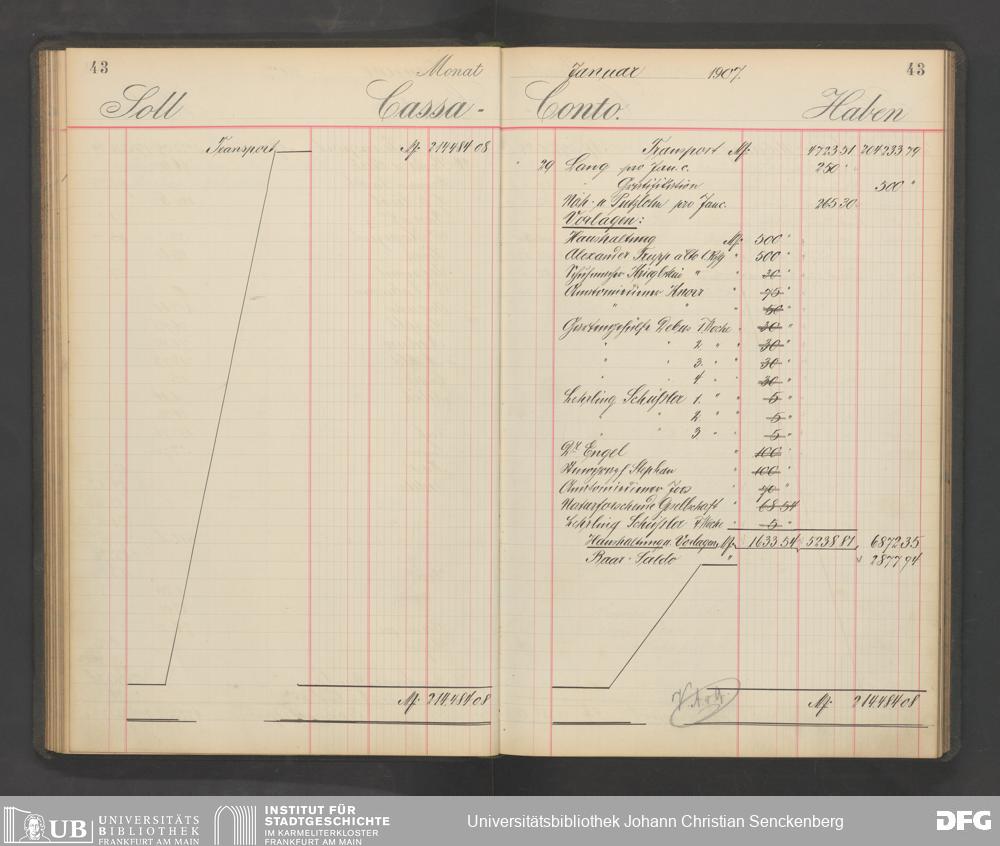 43
Monat
Soll
Cassa-
Transport
M. 214484 08
M. 214.484 08
Januar 1907.
43
Conto.
Haben
Transport M. 4723.51 204233.79
" 29 Lang pro Jan. c. 250 "
Gratification 300 "
Näh- u Putzlohn pro Janr. 265 30
Vorlagen:
Haushaltung M. 500 "
Alexander 500 "
" 30 "
Anatomiediener Knorr " 75 "
" " " 50 "
Gartengehülfe Debus 1 Woche " 30 "
" " 2. " " 30 "
" " 3. " " 30 "
" " 4 " " 30 "
Lehrling Scheifsler 1. " " 5 "
" " 2. " " 5 "
" " 3 " " 5 "
Dr. Engel " 100 "
Stephan " 100 "
Anatomiediener Joos " 70 "
Naturforschende Gesellschaft " 68 54
Lehrling Scheifsler 4 Woche " 5 "
Haushaltung u. Vorlagen M. 1633.54 5238.81 6872.35
Baar-Saldo " " 2877.94
M. 214.484 08
UB UNIVERSITÄTS
BIBLIOTHEK
FRANKFURT AM MAIN
INSTITUT FÜR
STADTGESCHICHTE
IM KARMELITERKLOSTER
FRANKFURT AM MAIN
Universitätsbibliothek Johann Christian Senckenberg
DFG